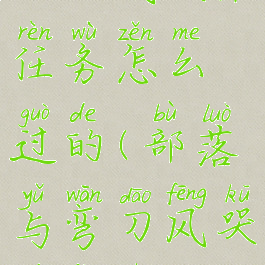 rèn wù zěn me
任务怎么
guò de bù luò
过的(部落
yǔ wān dāo fēng kū
与弯刀风哭